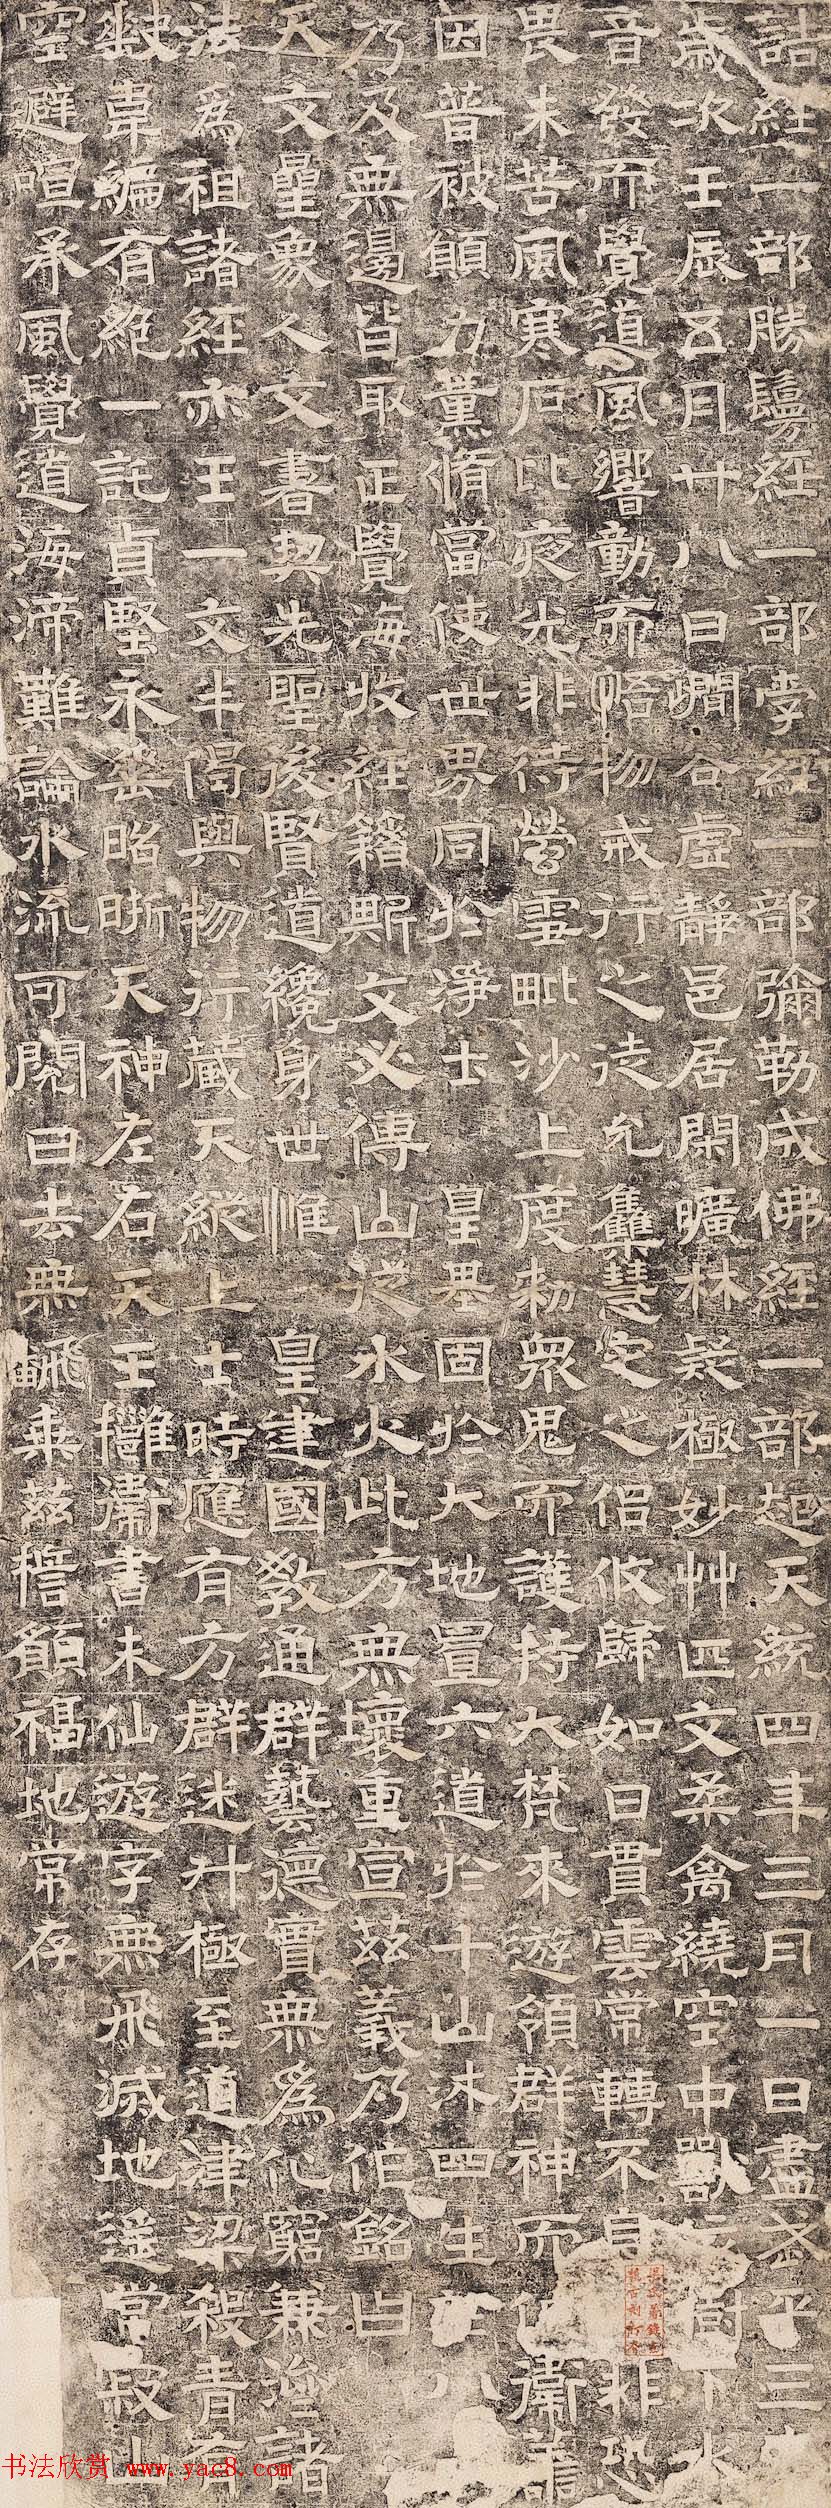 詰經一部勝鬘經一部孛經一部彌勒成佛經一部起天統四年三月一日盡武平三
歲次壬辰五月廿八日㵎谷虛靜邑居閑曠林疑極妙艸匹文柔禽繞空中獸 樹下水
音發而覺道風響動而悟物戒行之徒允集慧定之侶攸歸如日貫雲常轉不自 非恐
畏未苦風寒石比夜光非待螢雪毗沙上度勅眾鬼而護持大梵來遊領群神而 衛
因普被願力薰脩當使世界同於淨土 皇基固於大地置六道於十山沐四生於八
乃及無邊皆取正覺海收經籍斯文必傳山從水火此方無壞重宣茲義乃作銘曰
天文疊象人文書契先聖後賢道纔身世惟 皇建國教通群藝德實無爲化窮兼濟諸
法爲祖諸經亦王一文半偈與物行藏天縱上士時應有方群迷升極至道津梁殺青
缺韋編有絕一託貞堅永垂昭晰天神左右天王擁衛書未仙遊字無飛滅地遥常寂山
空避喧承風覺道海諦難論水流可閱日去無飜乘茲誓願福地常存
书法欣赏 www.yac8.com